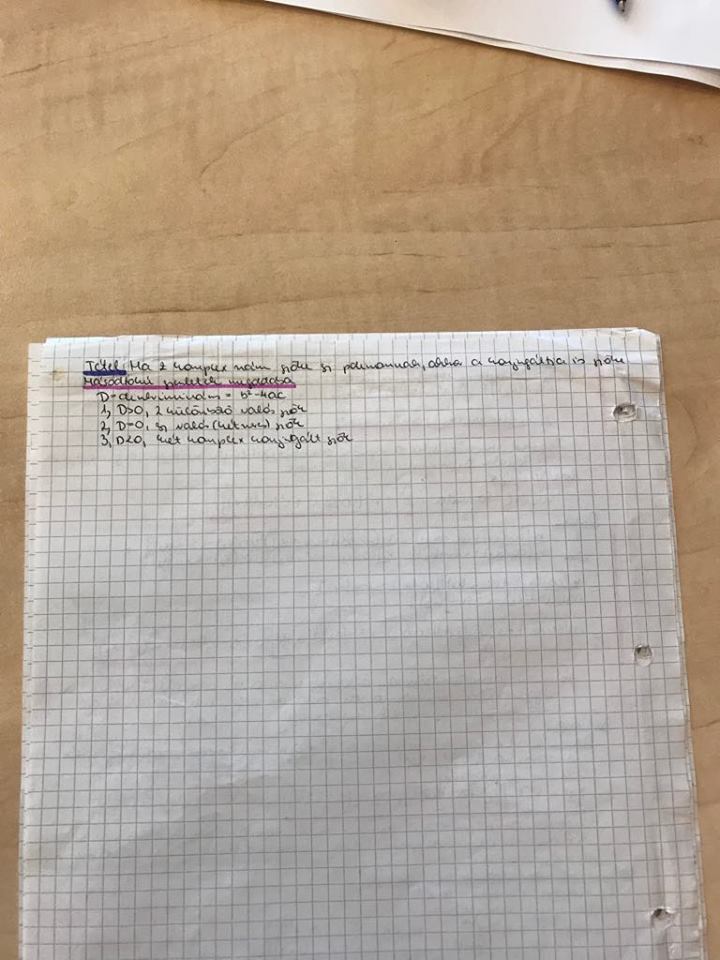 Tétel Ha z komplex szám gyöke egy polinomnak, akkor a konjugáltja is gyöke
Másodfokú képletek megoldása
D=diszkrimináns = b²-4ac
1, D>0, 2 különböző valós gyök
2, D=0, egy valós (kétszeres) gyök
3, D<0, két komplex konjugált gyök